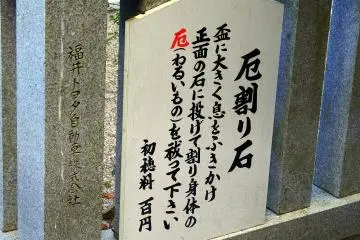 厄割り石
盃に大きく息をふきかけ
正面の石に投げて割り身体の
厄(わるいもの)を祓って下さい
初穂料 百円
福井トヨタ自動車株式会社